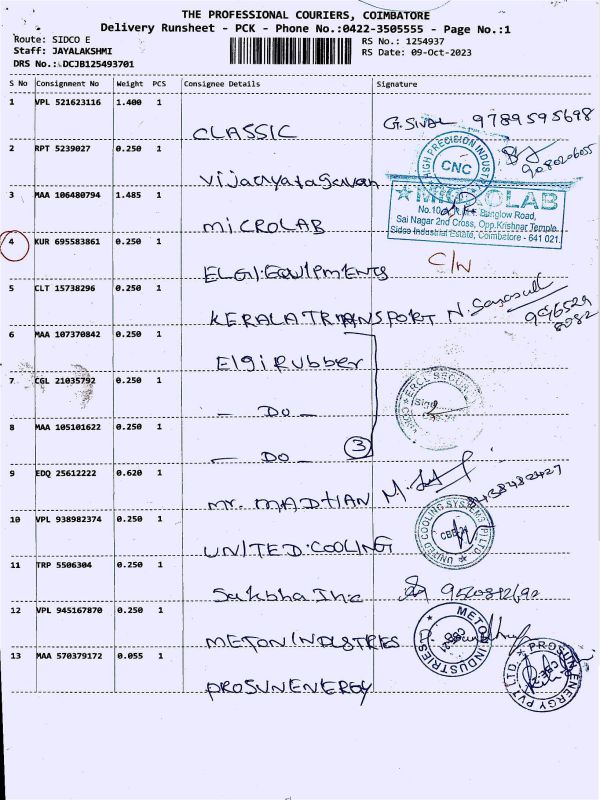 THE PROFESSIONAL COURIERS, COIMBATORE
Delivery Runsheet - PCK - Phone No.:0422-3505555 - Page No.:1
Route: SIDCO E
RS No.: 1254937
Staff: JAYALAKSHMI
RS Date: 09-Oct-2023
DRS No.:DCJB125493701
S No Consignment No Weight PCS Consignee Details Signature
1 VPL 521623116 1.400 1
CLASSIC G.SIVAL 9789595698
2 RPT 5239027 0.250 1
HIGH PRECISION INDUSTR
CNC
Vijayaragavan
3 MAA 106480794 1.485 1
MICROLAB
No.10 Bunglow Road,
Sai Nagar 2nd Cross, Opp.Krishnar Temple
Sidco Industrial Estate, Coimbatore - 641 021.
MiCROLAB
4 KUR 695583861 0.250 1
C/W
ELGI.EQUIPMENTS
5 CLT 15738296 0.250 1
KERALA TRANSPORT
6 MAA 107370842 0.250 1
ElgiRubber
7 CGL 21035792 0.250 1
- Do -
8 MAA 105101622 0.250 1
- Do - 3
9 EDQ 25612222 0.620 1
Mr. MADHAN
10 VPL 938982374 0.250 1
UNITED COOLING SYSTEMS (P) LTD.
CBE-21
UNITED.COOLING
11 TRP 5506304 0.250 1
Sakbha Inc
12 VPL 945167870 0.250 1
METON INDUSTRIES
CBE-21
METON INDUSTRIES
13 MAA 570379172 0.055 1
PROSUN ENERGY PVT LTD
CBE-21
PROSUN ENERGY